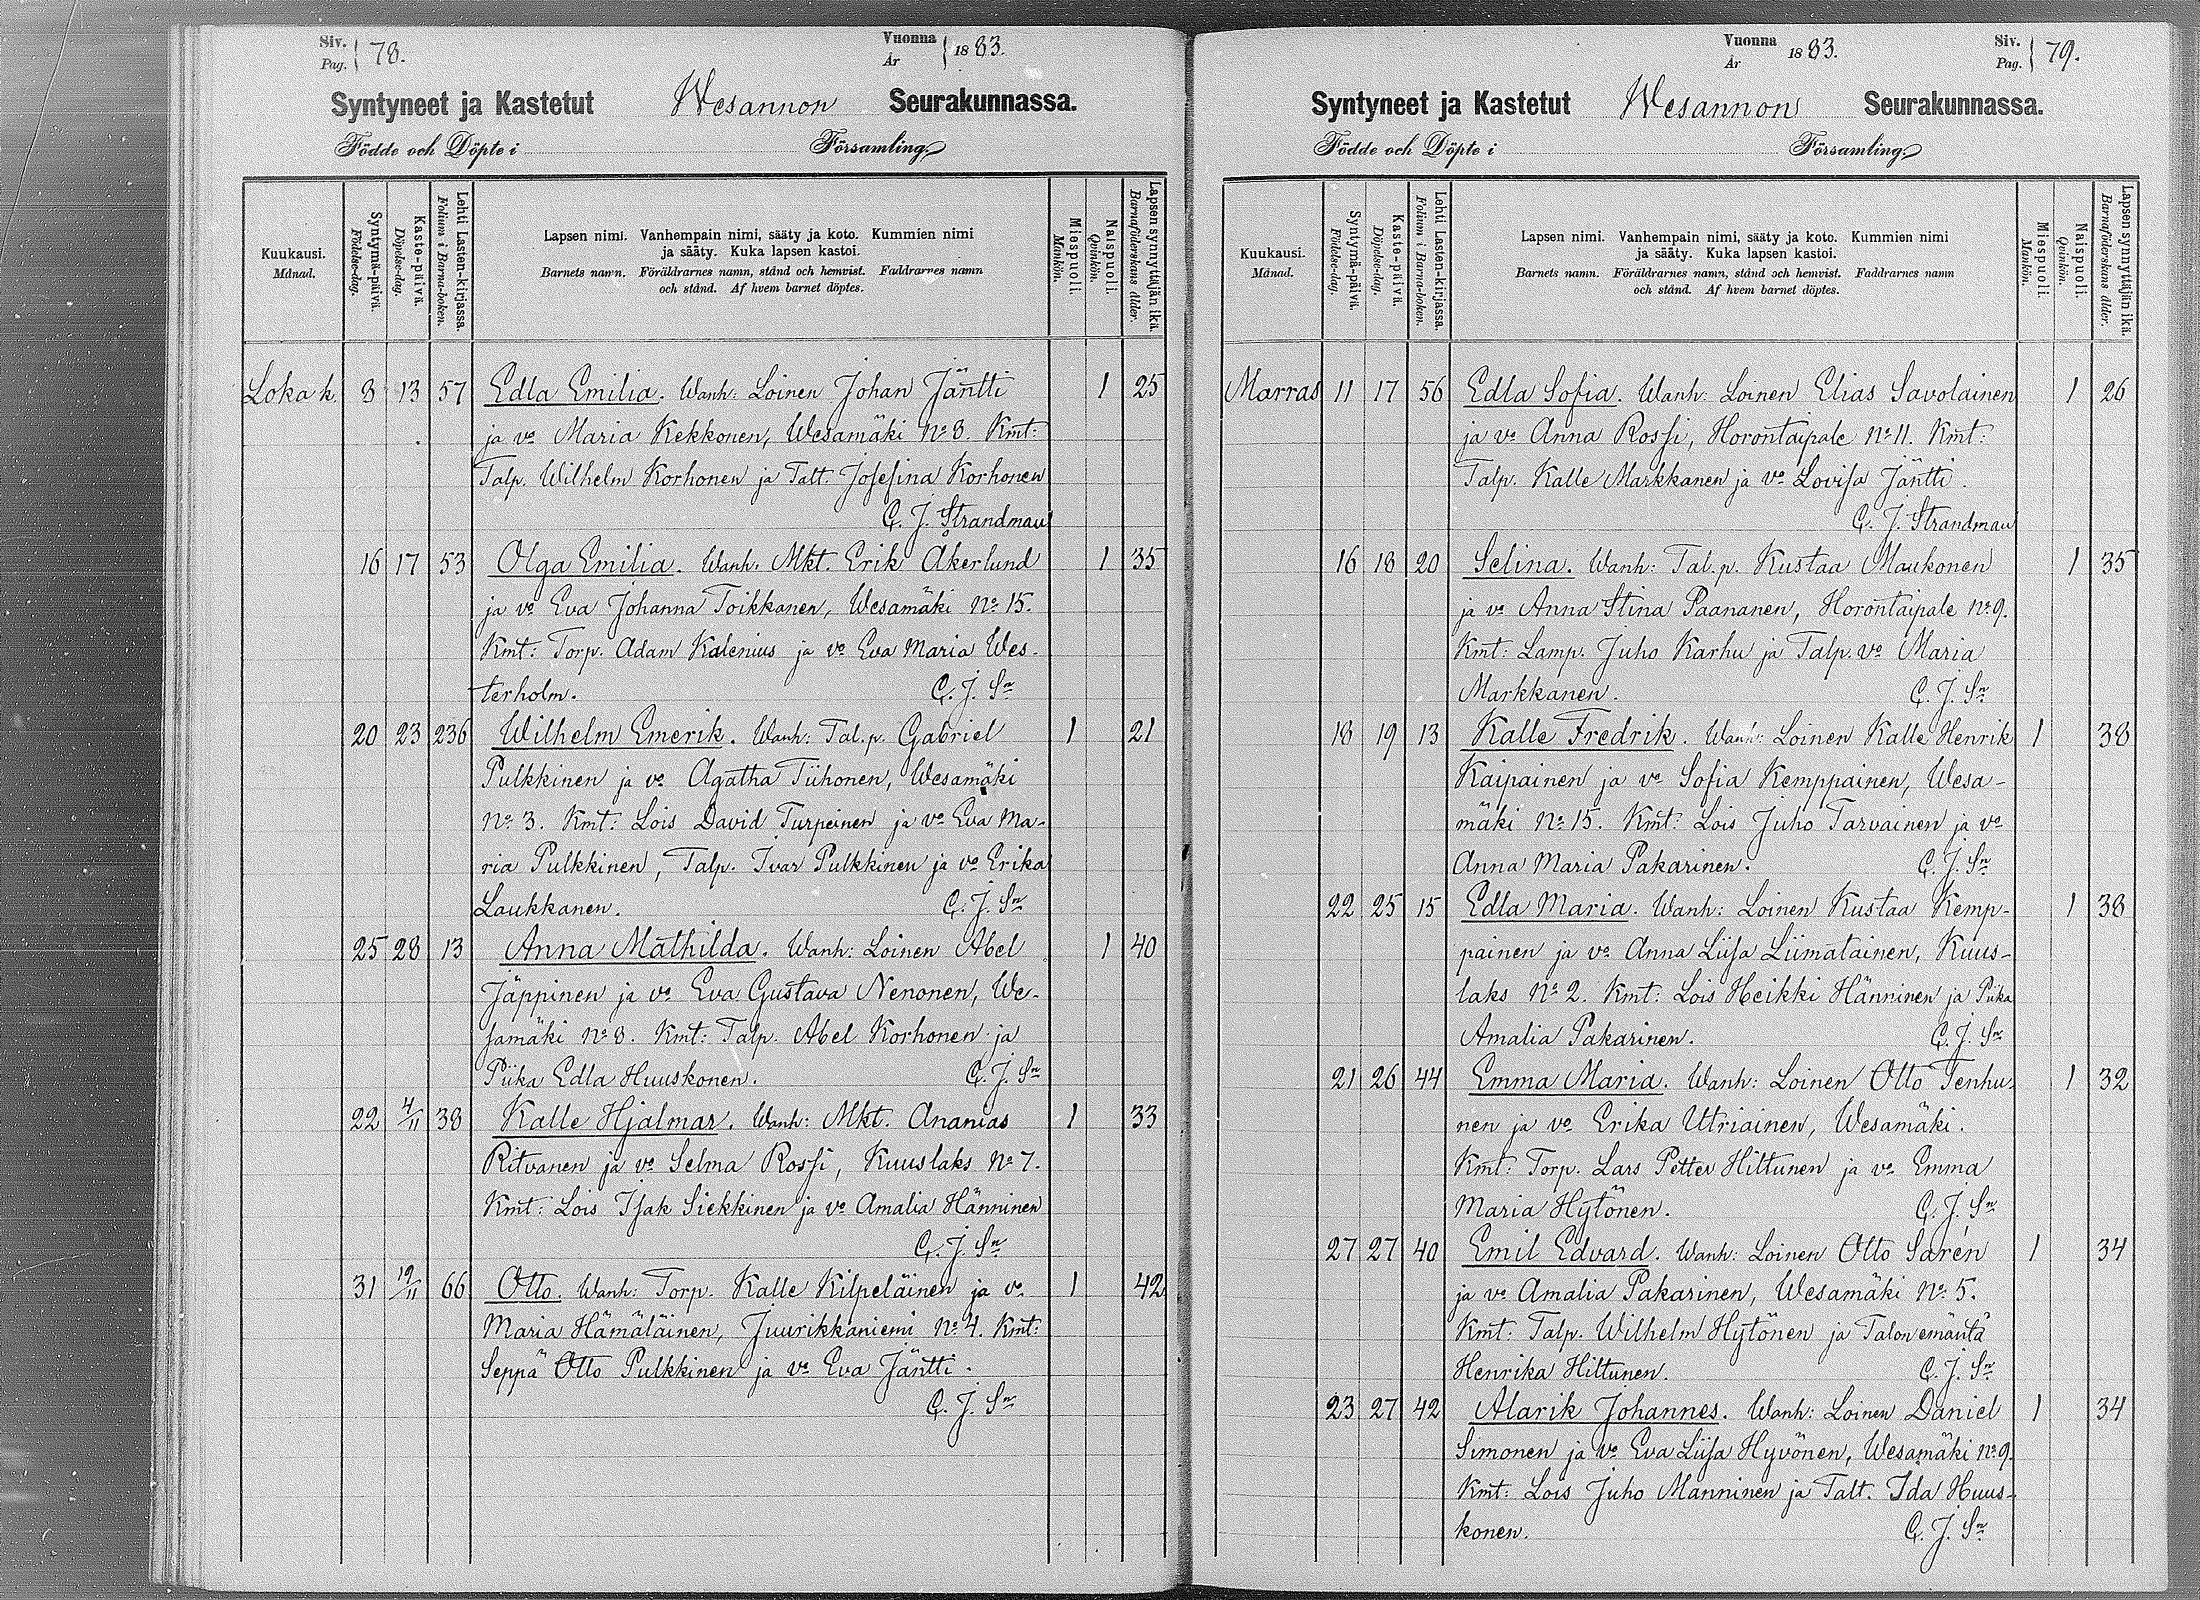 Siv. 78.
Pag.
Vuonna 1883.
År
Syntyneet ja Kastetut Wesannon Seurakunnassa.
Födde och Döpte i Församling.
Kuukausi.
Månad.
Syntymä-päivä.
Födelse-dag.
Kaste-päivä.
Döpelse-dag.
Lehti Lasten-kirjassa.
Folium i Barna-boken.
Lapsen nimi. Vanhempain nimi, sääty ja koto. Kummien nimi
ja sääty. Kuka lapsen kastoi.
Barnets namn. Föräldrarnes namn, stånd och hemvist. Faddrarnes namn
och stånd. Af hvem barnet döptes.
Miespuoli.
Mankön.
Naispuoli.
Qvinkön.
Lapsen synnyttäjän ikä.
Barnaföderskans ålder.
Loka k. 8 13 57 Edla Emilia. Wanh: Loinen Johan Jäntti 1 25
ja vo Maria Kekkonen, Wesamäki No 8. Kmt:
Talp. Wilhelm Korhonen ja Talt. Josefina Korhonen
C. J. Strandman
16 17 53 Olga Emilia. Wanh. Mkt. Erik Åkerlund 1 35
ja vo Eva Johanna Toikkanen, Wesamäki No 15.
Kmt: Torp. Adam Kalenius ja vo Eva Maria Wes-
terholm. C. J. Sn
20 23 236 Wilhelm Emerik. Wanh: Tal.p. Gabriel 1 21
Pulkkinen ja vo Agatha Tiihonen, Wesamäki
No 3. Kmt: Lois David Turpeinen ja vo Eva Ma-
ria Pulkkinen, Talp. Ivar Pulkkinen ja vo Erika
Laukkanen. C. J. Sn
25 28 13 Anna Mathilda. Wanh: Loinen Abel 1 40
Jäppinen ja vo Eva Gustava Nenonen, We-
samäki No 8. Kmt: Talp. Abel Korhonen ja
Piika Edla Huuskonen. C. J. Sn
22 4/11 38 Kalle Hjalmar. Wanh: Mkt. Ananias 1 33
Ritvanen ja vo Selma Rossi, Kuuslaks No 7.
Kmt: Lois Isak Siekkinen ja vo Amalia Hänninen
C. J. Sn
31 19/11 66 Otto. Wanh: Torp. Kalle Kilpeläinen ja vo 1 42
Maria Hämäläinen, Juurikkaniemi No 4. Kmt:
Seppä Otto Pulkkinen ja vo Eva Jäntti.
C. J. Sn
Vuonna 1883.
År
Siv. 79.
Pag.
Syntyneet ja Kastetut Wesannon Seurakunnassa.
Födde och Döpte i Församling.
Kuukausi.
Månad.
Syntymä-päivä.
Födelse-dag.
Kaste-päivä.
Döpelse-dag.
Lehti Lasten-kirjassa.
Folium i Barna-boken.
Lapsen nimi. Vanhempain nimi, sääty ja koto. Kummien nimi
ja sääty. Kuka lapsen kastoi.
Barnets namn. Föräldrarnes namn, stånd och hemvist. Faddrarnes namn
och stånd. Af hvem barnet döptes.
Miespuoli.
Mankön.
Naispuoli.
Qvinkön.
Lapsen synnyttäjän ikä.
Barnaföderskans ålder.
Marras 11 17 56 Edla Sofia. Wanh: Loinen Elias Savolainen 1 26
ja vo Anna Rossi, Horontaipale No 11. Kmt:
Talp. Kalle Markkanen ja vo Lovisa Jäntti.
C. J. Strandman
16 18 20 Selina. Wanh: Tal.p. Kustaa Maukonen 1 35
ja vo Anna Stina Paananen, Horontaipale No 9.
Kmt: Lamp. Juho Karhu ja Talp. vo Maria
Markkanen. C. J. Sn
18 19 13 Kalle Fredrik. Wanh: Loinen Kalle Henrik 1 38
Kaipainen ja vo Sofia Kemppainen, Wesa-
mäki No 15. Kmt: Lois Juho Tarvainen ja vo
Anna Maria Pakarinen. C. J. Sn
22 25 15 Edla Maria. Wanh: Loinen Kustaa Kemp- 1 38
painen ja vo Anna Liisa Liimatainen, Kuus-
laks No 2. Kmt: Lois Heikki Hänninen ja Piika
Amalia Pakarinen. C. J. Sn
21 26 44 Emma Maria. Wanh: Loinen Otto Tenhu- 1 32
nen ja vo Erika Utriainen, Wesamäki.
Kmt: Torp. Lars Petter Hiltunen ja vo Emma
Maria Hytönen. C. J. Sn
27 27 40 Emil Edvard. Wanh: Loinen Otto Sarén 1 34
ja vo Amalia Pakarinen, Wesamäki No 5.
Kmt: Talp. Wilhelm Hytönen ja Talon emäntä
Henrika Hiltunen. C. J. Sn
23 27 42 Alarik Johannes. Wanh: Loinen Daniel 1 34
Simonen ja vo Eva Liisa Hyvönen, Wesamäki No 9.
Kmt: Lois Juho Manninen ja Talt. Ida Huus-
konen. C. J. Sn